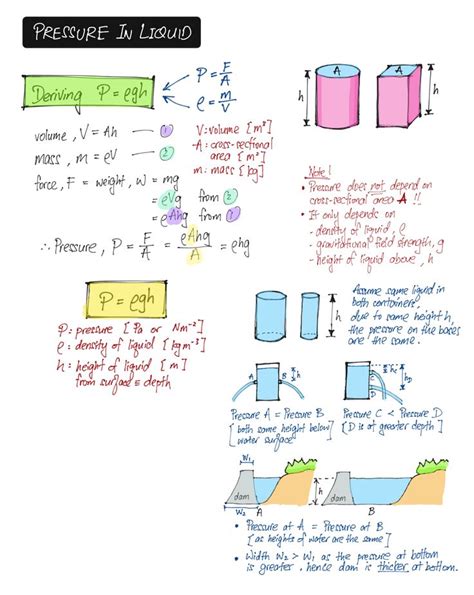 PRESSURE IN LIQUID
Deriving P = ρgh
P = F/A
ρ = m/V
volume, V = Ah — ①
mass, m = ρV — ②
force, F = weight, W = mg
= ρVg from ②
= ρAhg from ①
∴ Pressure, P = F/A = ρAhg/A = ρhg
V: volume [m³]
A: cross-sectional
area [m²]
m: mass [kg]
A
h
A
h
Note!
• Pressure does not depend on
cross-sectional area A !!
• It only depends on
- density of liquid, ρ
- gravitational field strength, g
- height of liquid above, h
P = ρgh
P: pressure [Pa or Nm⁻²]
ρ: density of liquid [kg m⁻³]
h: height of liquid [m]
from surface ≡ depth
h
Assume same liquid in
both containers,
due to same height h,
the pressure on the bases
are the same.
A
B
h
C
D
hc
hD
Pressure A = Pressure B
[both same height below
water surface]
Pressure C < Pressure D
[D is at greater depth]
W₁
dam
W₂
A
h
dam
B
• Pressure at A = Pressure at B
[as heights of water are the same]
• Width W₂ > W₁ as the pressure at bottom
is greater, hence dam is thicker at bottom.